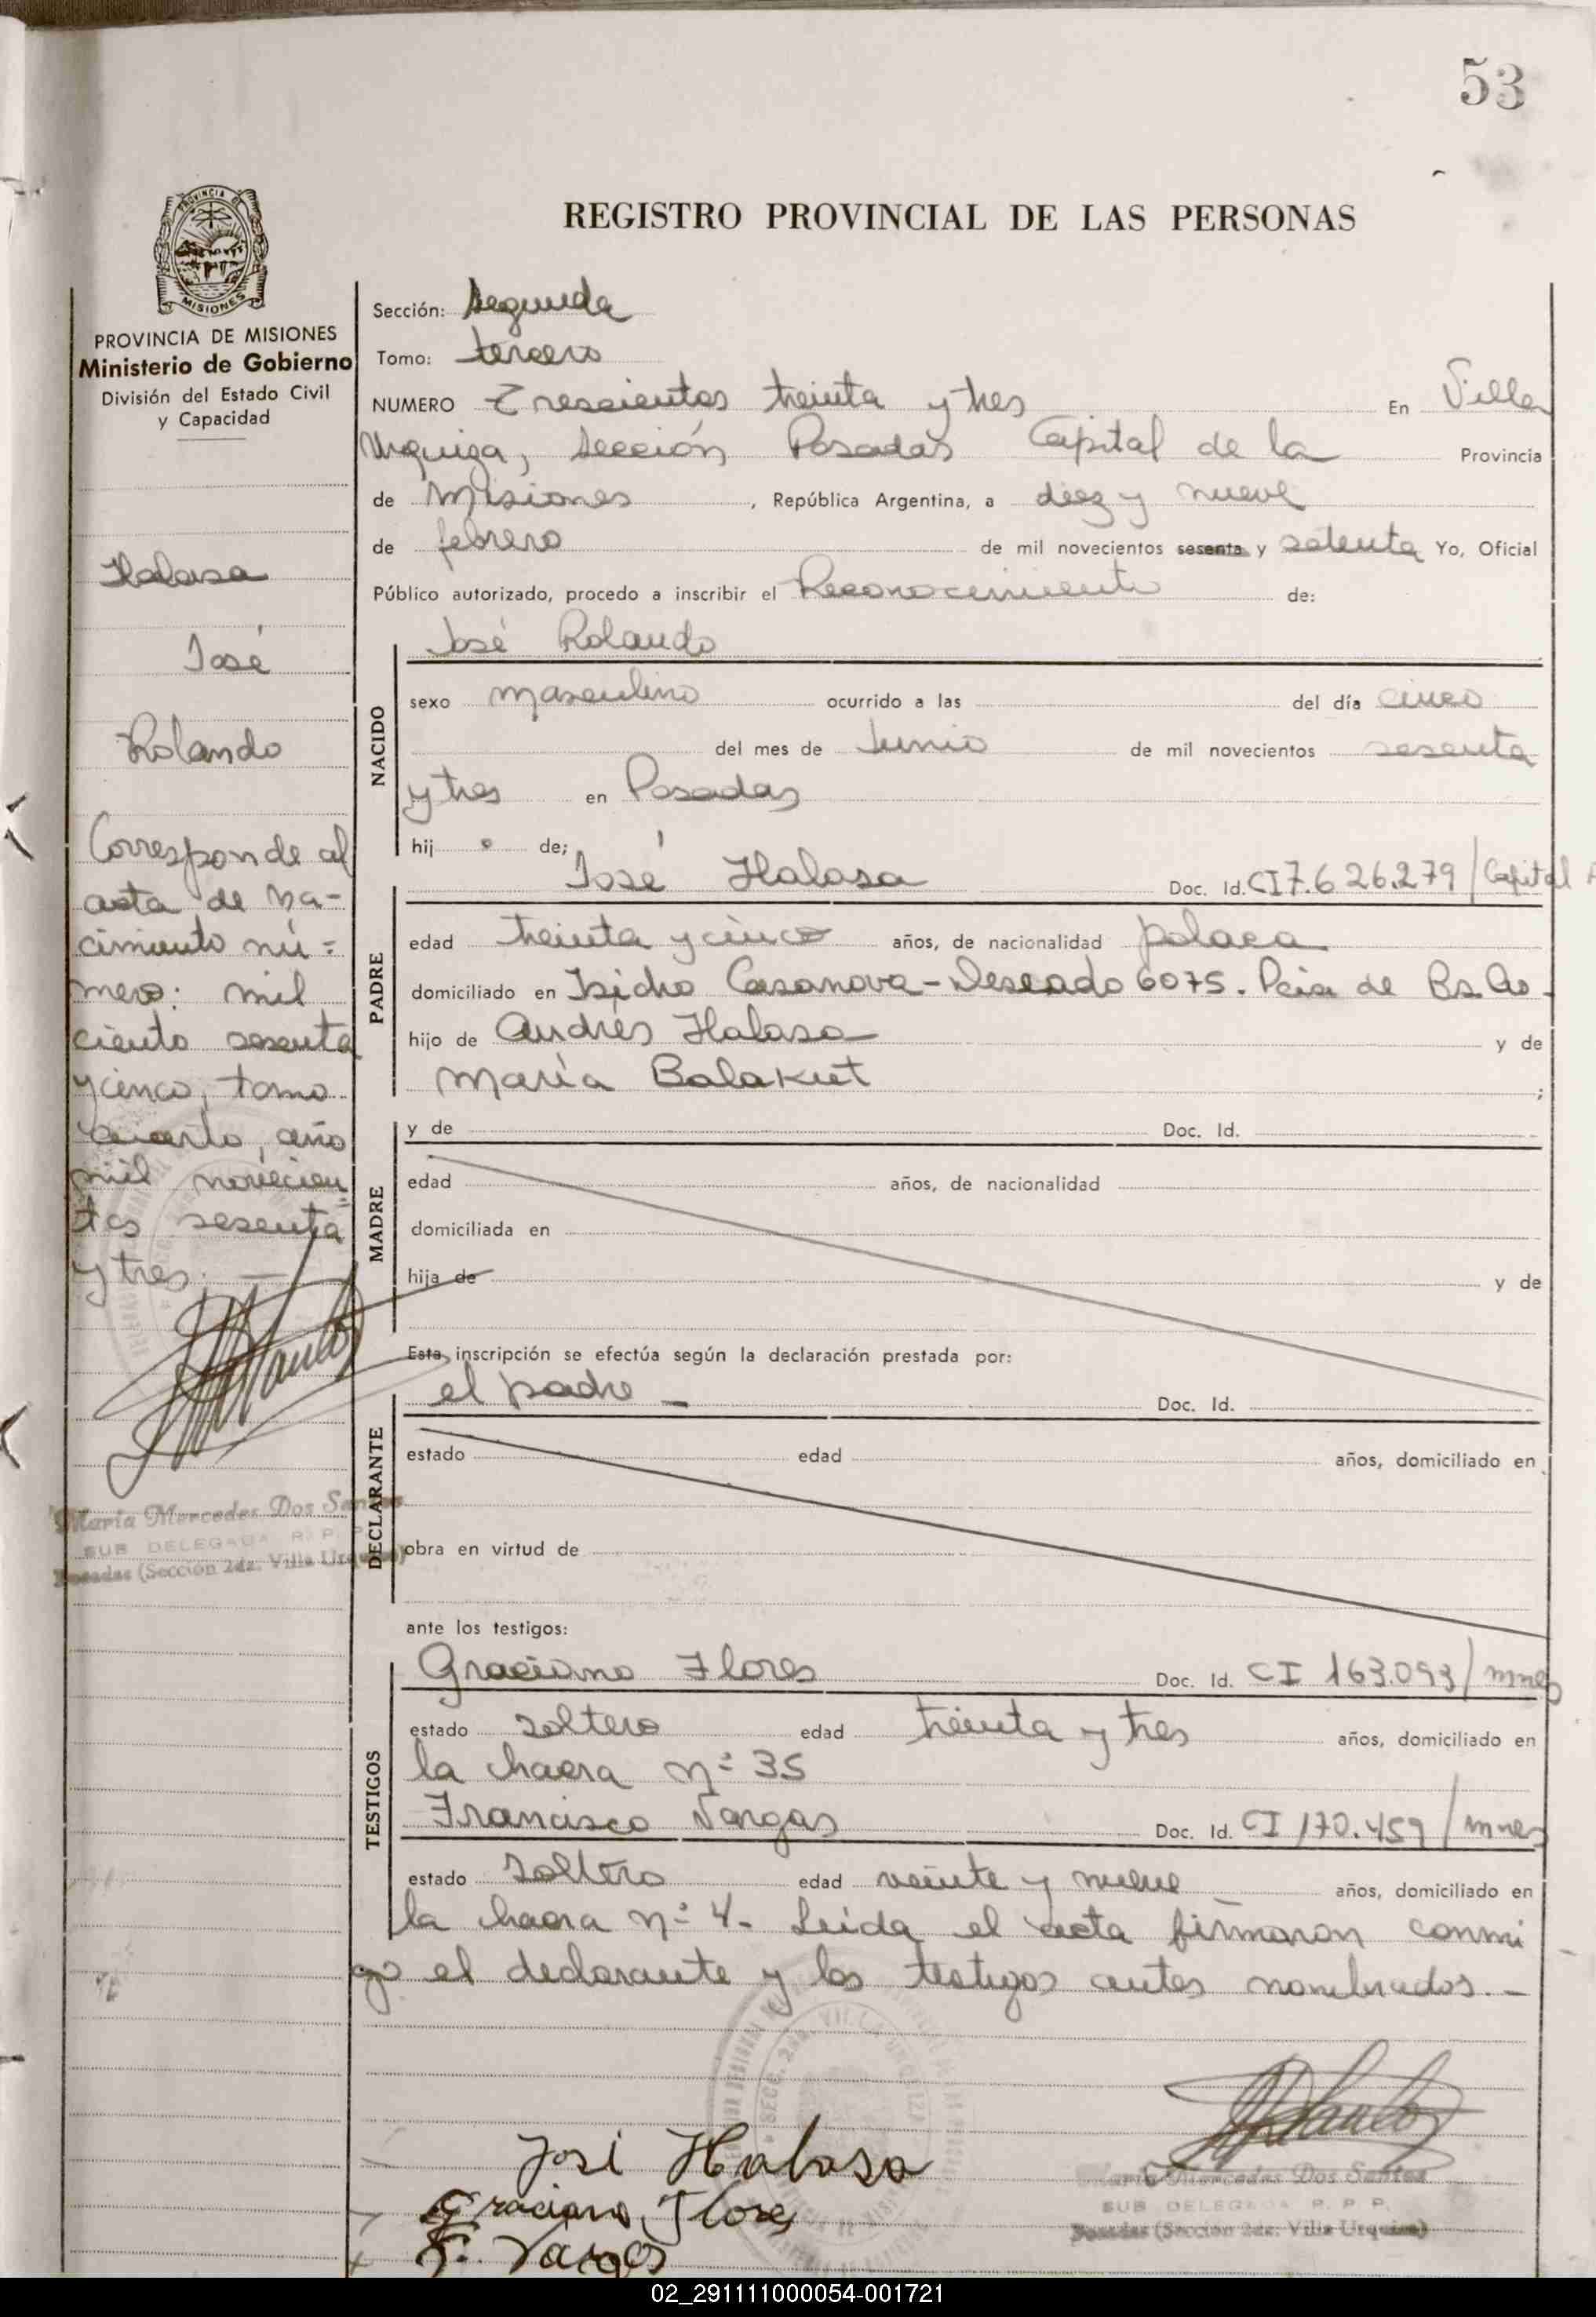 53
PROVINCIA DE
MISIONES
REGISTRO PROVINCIAL DE LAS PERSONAS
PROVINCIA DE MISIONES
Ministerio de Gobierno
División del Estado Civil
y Capacidad
Halasa
José
Rolando
Corresponde al
acta de na-
cimiento nú=
mero: mil
ciento sesenta
y cinco, tomo
cuarto, año
mil novecien=
tos sesenta
y tres. —
María Mercedes Dos Santos
SUB DELEGADA R. P. P.
Posadas (Sección 2da. Villa Urquiza)
Sección: Segunda
Tomo: tercero
NUMERO Trescientos treinta y tres En Villa
Urquiza, Sección Posadas Capital de la Provincia
de Misiones, República Argentina, a diez y nueve
de febrero de mil novecientos sesenta y setenta Yo, Oficial
Público autorizado, procedo a inscribir el Reconocimiento de:
José Rolando
NACIDO
sexo masculino ocurrido a las del día cinco
del mes de Junio de mil novecientos sesenta
y tres en Posadas
hij o de;
José Halasa Doc. Id. CI 7.626.279/Capital
PADRE
edad treinta y cinco años, de nacionalidad polaca
domiciliado en Isidro Casanova - Deseado 6075. Pcia de Bs. As.
hijo de Andrés Halasa y de
María Balakut ;
MADRE
y de Doc. Id.
edad años, de nacionalidad
domiciliada en
hija de y de
Esta inscripción se efectúa según la declaración prestada por:
el padre — Doc. Id.
DECLARANTE
estado edad años, domiciliado en
obra en virtud de
ante los testigos:
TESTIGOS
Graciano Flores Doc. Id. CI 163.093/mnes
estado soltero edad treinta y tres años, domiciliado en
la chacra nº 35
Francisco Vargas Doc. Id. CI 170.459/mnes
estado soltero edad veinte y nueve años, domiciliado en
la chacra nº 4- Leída el acta firmaron conmi
go el declarante y los testigos antes nombrados. -
José Halasa
Graciano Flores
F. Vargas
María Mercedes Dos Santos
SUB DELEGADA R. P. P.
Posadas (Sección 2da. Villa Urquiza)
02_291111000054-001721